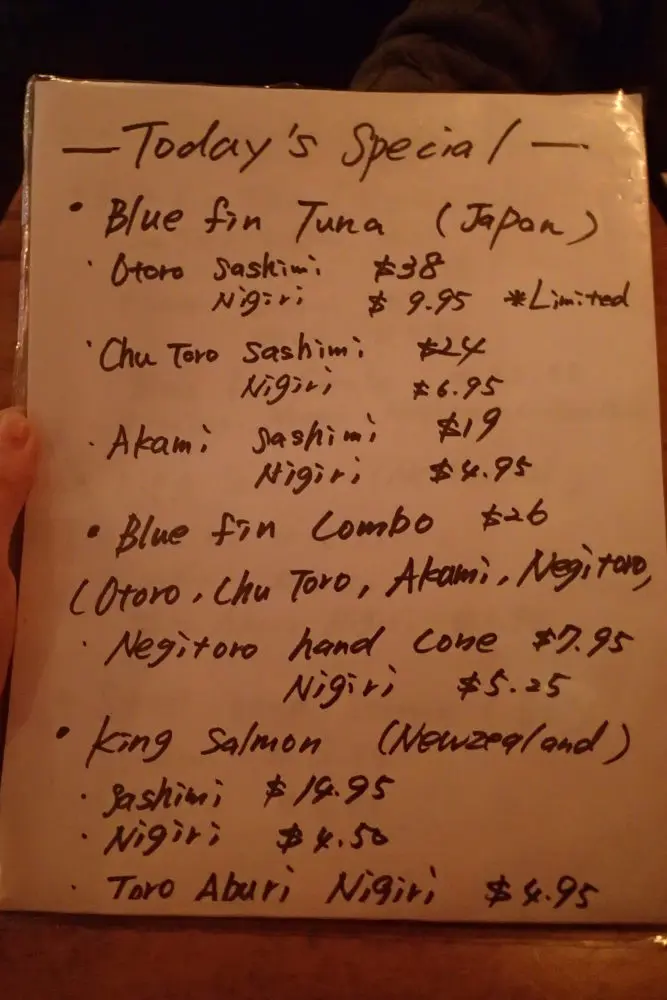 — Today's Special —
• Blue fin Tuna (Japan)
· Otoro Sashimi $38
Nigiri $9.95 *Limited
· Chu Toro Sashimi $24
Nigiri $6.95
· Akami Sashimi $19
Nigiri $4.95
• Blue fin Combo $26
(Otoro, Chu Toro, Akami, Negitoro,
· Negitoro hand Cone $7.95
Nigiri $5.25
• King Salmon (Newzealand)
· Sashimi $14.95
· Nigiri $4.50
· Toro Aburi Nigiri $4.95